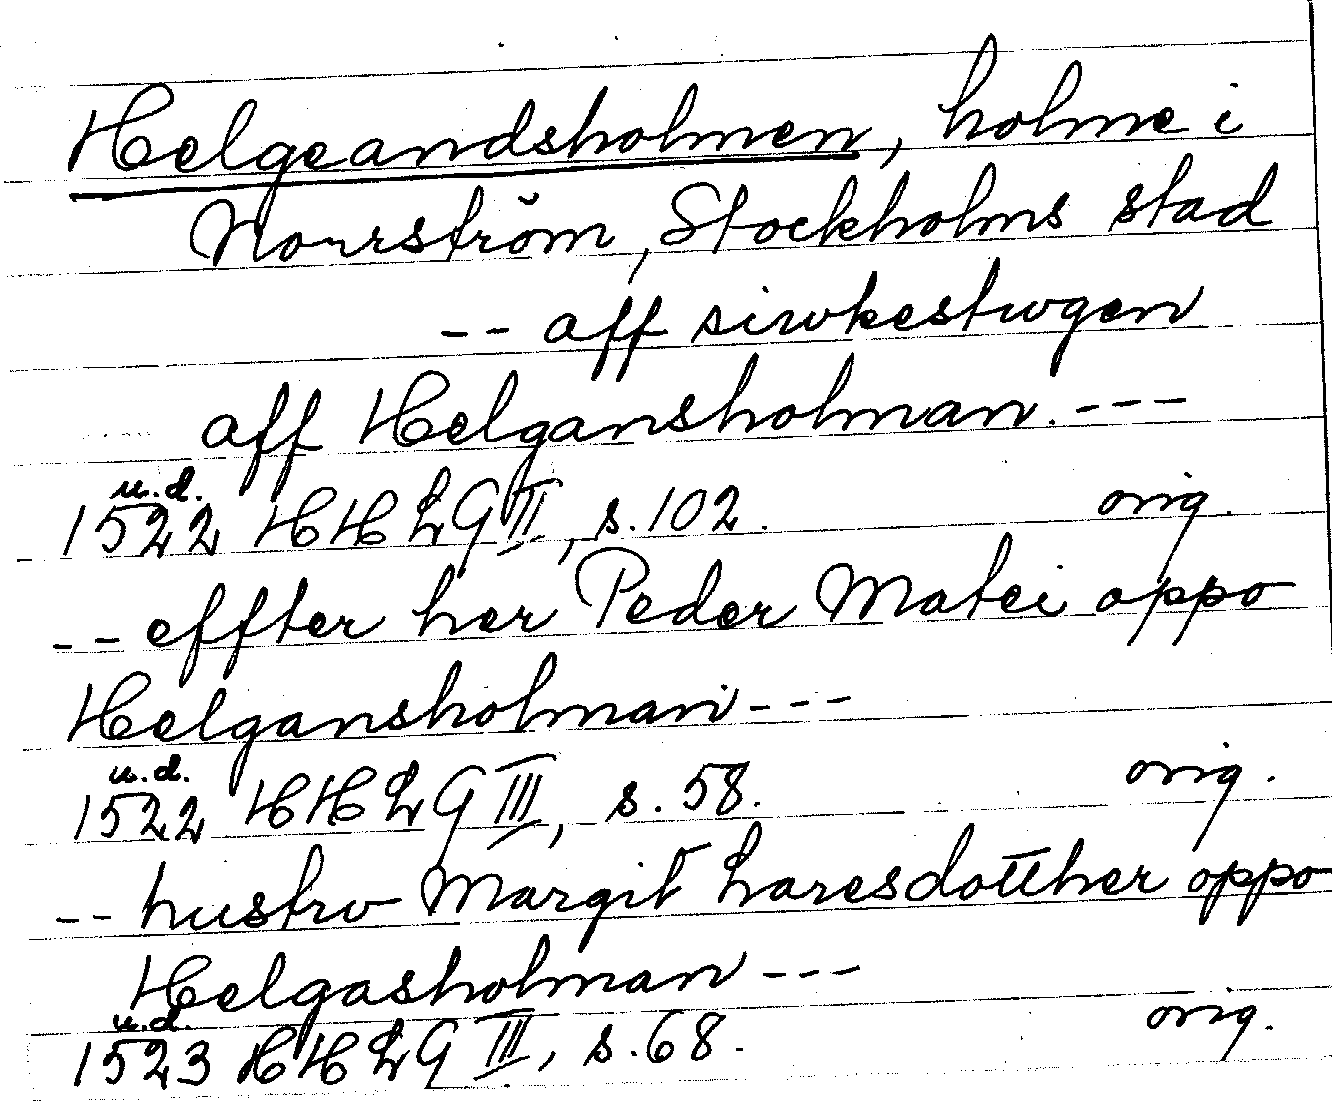 Helgeandsholmen, holme i
Norrström, Stockholms stad
-- aff siwkestwgen
aff Helgansholman. ---
u.d.
1522 HHLG II, s. 102. orig.
-- effter her Peder Matei oppo
Helgansholman ---
u.d.
1522 HHLG III, s. 58. orig.
-- hustrv Margit Laresdotther oppo
Helgasholman ---
u.d.
1523 HHLG III, s. 68. orig.